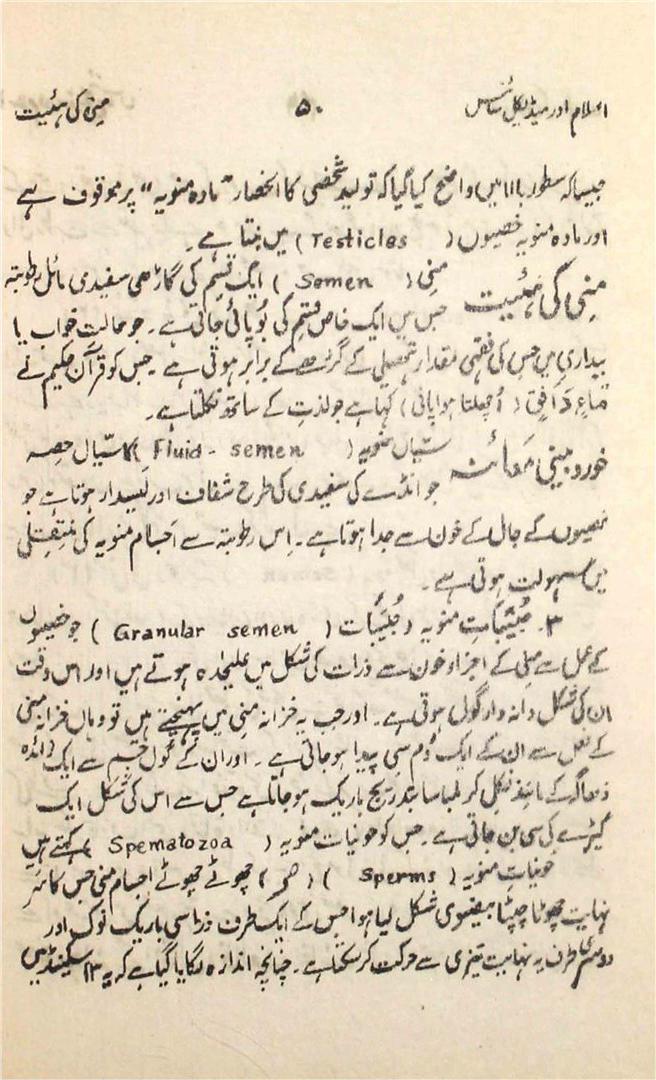 اسلام اور میڈیکل سائنس ۵۰ منی کی ہئیت
جیسا کہ سطور بالا میں واضح کیا گیا کہ تولید شخصی کا انحصار "مادہ منویہ" پر موقوف ہے
اور مادہ منویہ خصیوں ( Testicles ) میں بنتا ہے۔
منی کی ہئیت منی ( Semen ) ایک قسم کی گاڑھی سفیدی مائل رطوبتہ
جس میں ایک خاص قسم کی بُو پائی جاتی ہے۔ جو حالت خواب یا
بیداری میں جس کی فقہی مقدار ہتھیلی کے گڑھے کے برابر ہوتی ہے۔ جس کو قرآن حکیم نے
مَاءٍ دَافِقٍ ( اُچھلتا ہوا پانی ) کہا ہے جو لذت کے ساتھ نکلتا ہے۔
خوردبینی مَعائنہ سیّال منویہ ( Fluid - semen ) کا سیّال حصہ
جو انڈے کی سفیدی کی طرح شفاف اور لیسدار ہوتا ہے جو
خصیوں کے جال کے خون سے جدا ہوتا ہے۔ اِس رطوبتہ سے اَجسام منویہ کی مُنتقلی
میں سہولت ہوتی ہے۔
۳۔ حُبَیبَاتِ منویہ و حُبَیبَات ( Granular semen ) جو خصیوں
کے عمل سے منی کے اجزاء خون سے ذرات کی شکل میں علیحدہ ہوتے ہیں اور اس وقت
ان کی شکل دانہ وار گولی ہوتی ہے۔ اور جب یہ خزانہ منی میں پہنچتے ہیں تو وہاں خزانہ منی
کے فعل سے ان کے ایک دُم سی پیدا ہو جاتی ہے۔ اور ان کے گول جسم سے ایک زائدہ
دھاگے کے مانند نکل کر لمبا سا بتدریج باریک ہو جاتا ہے جس سے اس کی شکل ایک
کیڑے کی سی بن جاتی ہے۔ جس کو حونیات منویہ ( Spematozoa ) کہتے ہیں
حونیاتِ منویہ ( Sperms ) ( ) چھوٹے چھوٹے اجسام منی جس کا سَر
نہایت چھوٹا چپٹا بیضوی شکل لیا ہوا جس کے ایک طرف ذرا سی باریک نوک اور
دوسری طرف یہ نہایت تیزی سے حرکت کر سکتا ہے۔ چنانچہ اندازہ لگایا گیا ہے کہ یہ ۱۳ سکینڈ میں